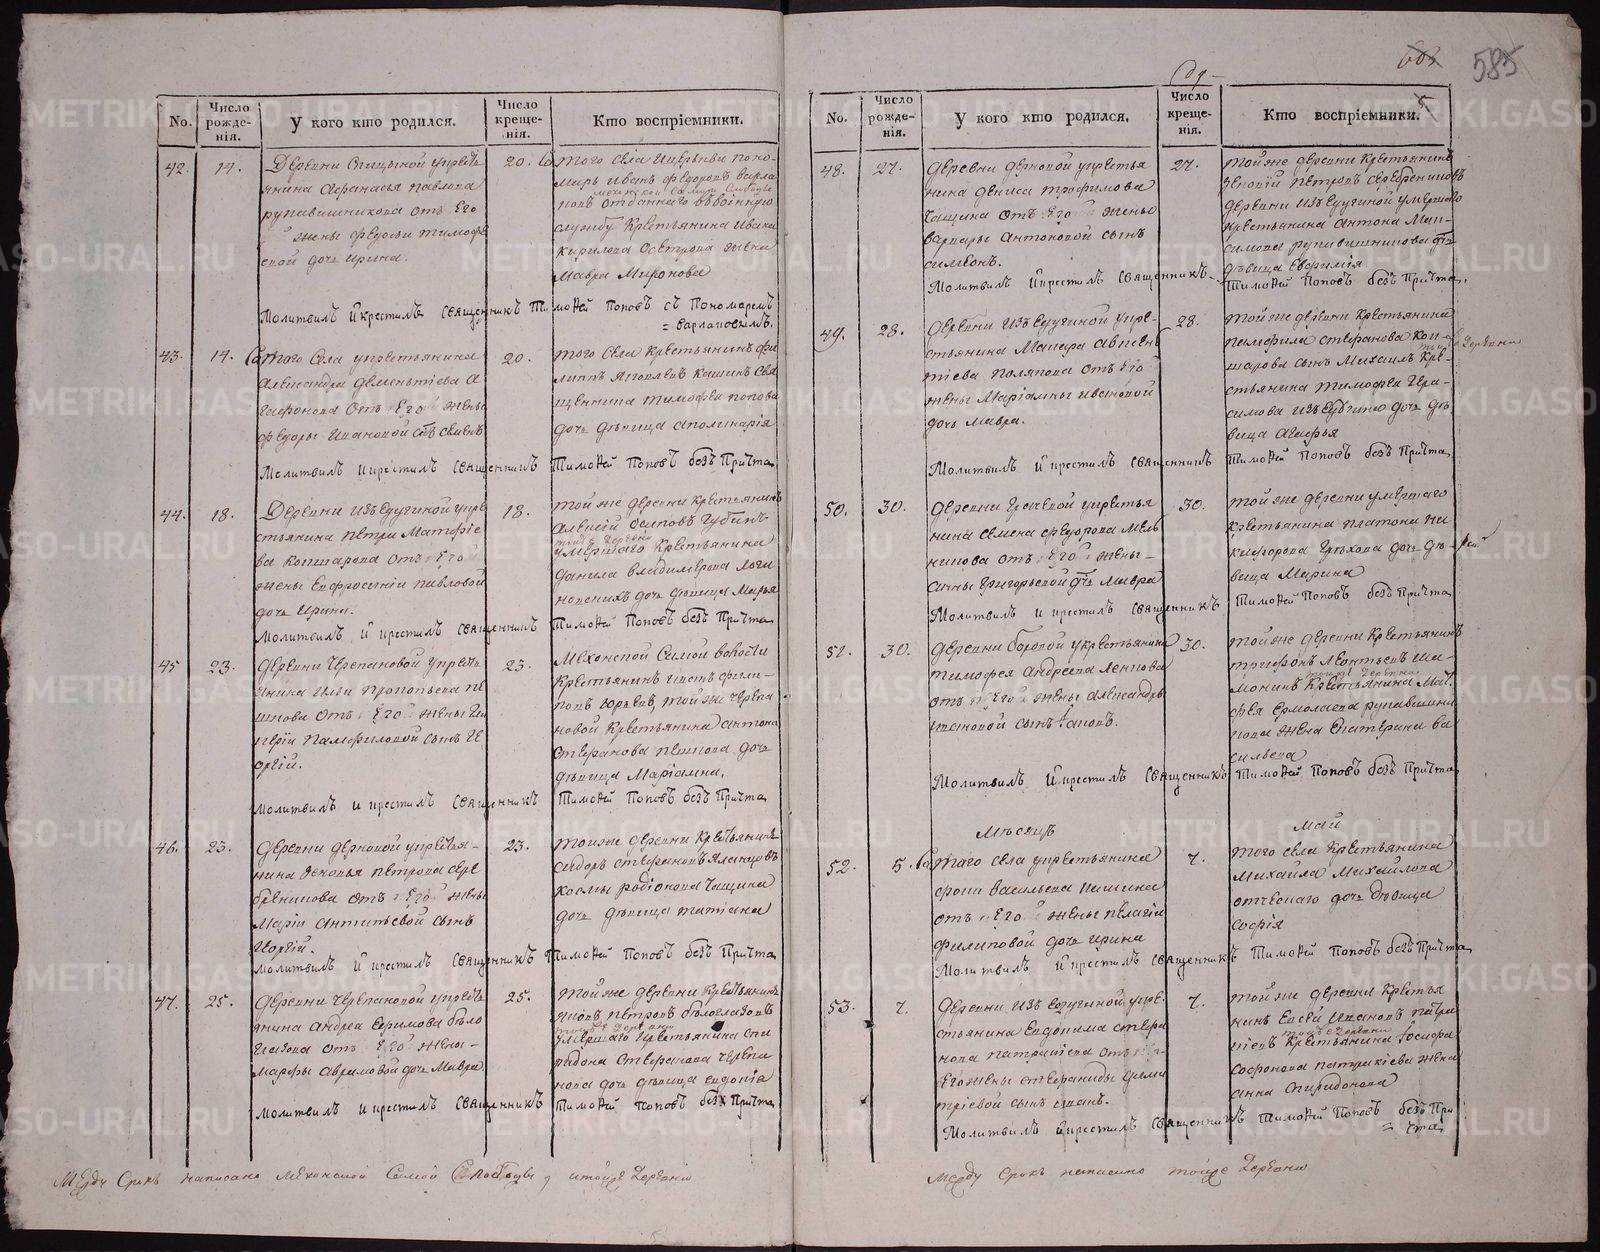 585
No.
Число рожде-нія.
У кого кто родился.
Число креще-нія.
Кто воспріемники.
42.
14.
Деревни
янина Афанасья Павлова
рукавишникова отъ Его
жены Федосьи Тимофе
евой дочь Ирина.
20.
того села
марь Иванъ Федоровъ Варла
повъ отданнаго въ военную
службу Крестьянина Ивана
Кирилова Осетрова жена
Мавра Миронова
Молитвилъ и крестилъ священникъ Тимофей Поповъ съ Пономаремъ
= Варлаповымъ.
43.
14.
того села укрестьянина
Александра Дементіева А
гафонова отъ Его жены
Федоры Ивановой сынъ
20.
того села Крестьянинъ Фи
липпъ Яковлевъ Кашинъ Свя
щенника Тимофея Попова
дочь дѣвица Аполинарія
Молитвилъ и крестилъ священникъ Тимофей Поповъ безъ Причта
44.
18.
Деревни Изъедугиной укре
стьянина Петра Матфіе
ва Кокшарова отъ Его
жены Евфросиніи Павловой
дочь Ирина.
18.
той же деревни Крестьянинъ
Алексій Осиповъ Губинъ
тойже деревни
умершаго Крестьянина
Данила Владимерова Логи
новскихъ дочь дѣвица Марья
Молитвилъ и крестилъ священникъ Тимофей Поповъ безъ Причта
45
23.
деревни Черепановой укресть
янина Ильи Прокопьева Пе
шкова отъ Его жены Гли
керіи Памфиловой сынъ Ге
оргій.
23.
Мехонской Самой волости
Крестьянинъ Иванъ Фили-
повъ Юрьевъ, той же Черепа
новой Крестьянина Антона
Стефанова Пешкова дочь
дѣвица Маріамна.
Молитвилъ и крестилъ священникъ Тимофей Поповъ безъ Причта
46.
23.
деревни Дерновой укрестья-
нина Зеновья Петрова Сере
бреникова отъ Его жены
Маріи Антипьевой сынъ
Георгій.
23.
той же деревни Крестьянинъ
Сидоръ Стефановъ
Космы Родіонова Чащина
дочь дѣвица Татіана
Молитвилъ и крестилъ священникъ Тимофей Поповъ безъ Причта
47.
25.
деревни Черепановой укресть
янина Андрея Ефимова Бѣло
глазова отъ Его жены-
Марфы Аврамовой дочь Мавра
25.
той же деревни Крестьянинъ
Яковъ Петровъ Бѣлоглазовъ
тойже деревни
умершаго Крестьянина Спи
ридона Стефанова Черепа
нова дочь дѣвица Евдокія
Молитвилъ и крестилъ священникъ Тимофей Поповъ безъ Причта
Между строкъ написано Мехонской Самой Слободы и тойже деревни
No.
Число рожде-нія.
У кого кто родился.
Число креще-нія.
Кто воспріемники.
48.
27.
деревни Дерновой укрестья
нина Дениса Трофимова
Чащина отъ Его жены
Варвары Антоновой сынъ
Симеонъ.
27.
той же деревни Крестьянинъ
Зеновій Петровъ Серебрениковъ
деревни Изъедугиной умершаго
Крестьянина Антона Мак-
симова Рукавишникова дочь
дѣвица Евфимія
Молитвилъ и крестилъ священникъ Тимофей Поповъ безъ Причта.
49.
28.
деревни Изъедугиной укре-
стьянина Макара Авксен
тіева Полякова отъ Его
жены Маріамны Ивановой
дочь Мавра.
28.
той же деревни Крестьянина
Памфила Стефанова Кок-
шарова сынъ Михаилъ Кре-
стьянина Тимофея Гера-
симова дочь дѣ
вица Агафья
Молитвилъ и крестилъ священникъ Тимофей Поповъ безъ Причта
50.
30.
деревни Грачевой укрестья
нина Семена Федорова Мель
никова отъ Его жены-
Анны Григорьевой дочь Мавра
30.
той же деревни умершаго
Крестьянина Платона Ни
кифорова Грѣхова дочь дѣ-
вица Марина
Молитвилъ и крестилъ священникъ Тимофей Поповъ безъ Причта
51.
30.
деревни Боровой укрестьянина
Тимофея Андреева Ленкова
отъ Его жены Александры
Ивановой сынъ Іаковъ.
30.
той же деревни Крестьянинъ
Трифонъ Леонтьевъ Ша-
монинъ Крестьянина Мат
тойже деревни
фея Ермолаева Рукавишни
кова жена Екатерина Ва
сильева
Молитвилъ и крестилъ священникъ Тимофей Поповъ безъ Причта
Мѣсяцъ Май
52.
5.
того села укрестьянина
Фоки Васильева Кашина
отъ Его жены Пелагіи
Филиповой дочь Ирина
7.
того села Крестьянина
Михаила Михайлова
дочь дѣвица
Софія
Молитвилъ и крестилъ священникъ Тимофей Поповъ безъ Причта
53.
7.
деревни Изъедугиной укре-
стьянина Евдокима Стефа
нова Патракіева отъ
Его жены Стефаниды Дими
тріевой сынъ Иванъ.
7.
той же деревни Крестья
нинъ Евсей Ивановъ Патра
кіевъ Крестьянина Іосифа
тойже деревни
Софронова Патракіева жена
Анна Спиридонова
Молитвилъ и крестилъ священникъ Тимофей Поповъ безъ При
= чта
Между строкъ написано тойже деревни
METRIKI.GASO-URAL.RU